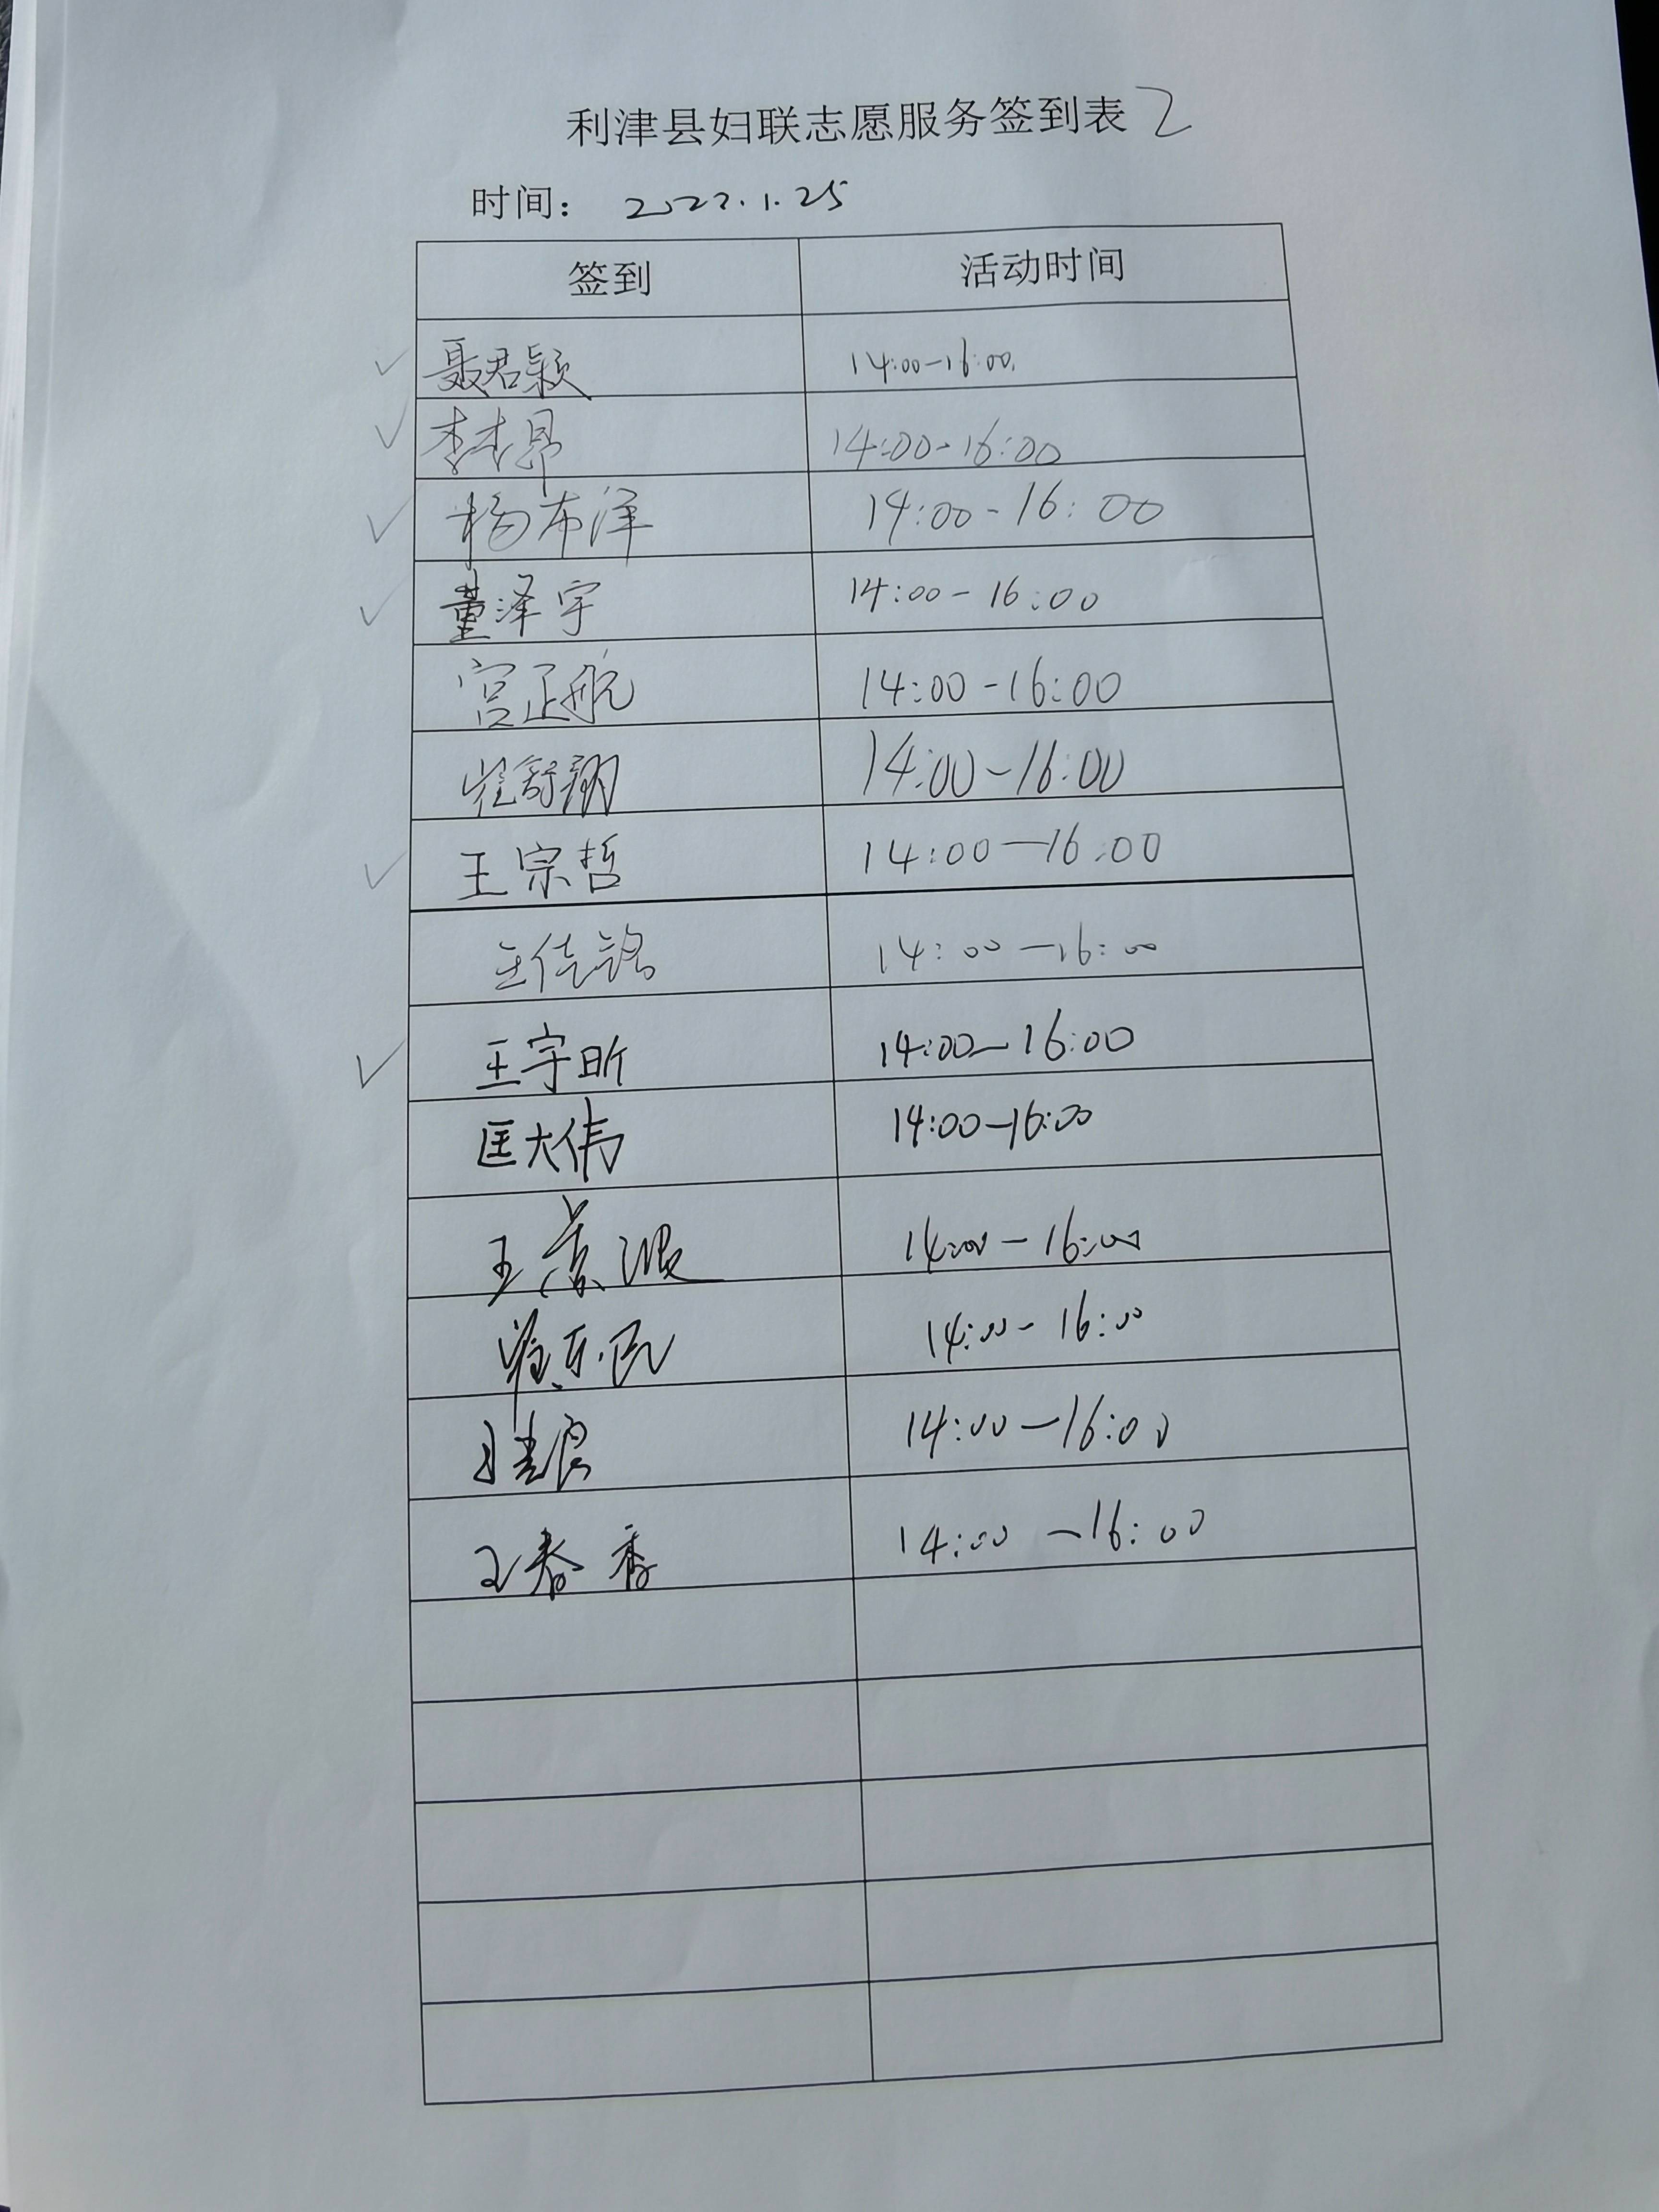 利津县妇联志愿服务签到表 2
时间： 2022.1.25
签到 活动时间
聂君颖 14:00-16:00
李李昂 14:00-16:00
杨布泽 14:00-16:00
董泽宇 14:00-16:00
宫正航 14:00-16:00
崔舒翔 14:00-16:00
王宗哲 14:00-16:00
王佳铭 14:00-16:00
王宇昕 14:00-16:00
匡大伟 14:00-16:00
王 14:00-16:00
14:00-16:00
14:00-16:00
王春香 14:00-16:00